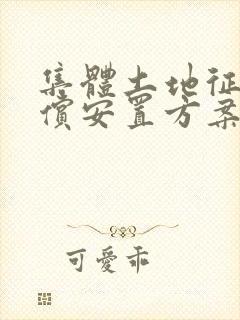 集體土地征
償安置方案
可愛乖